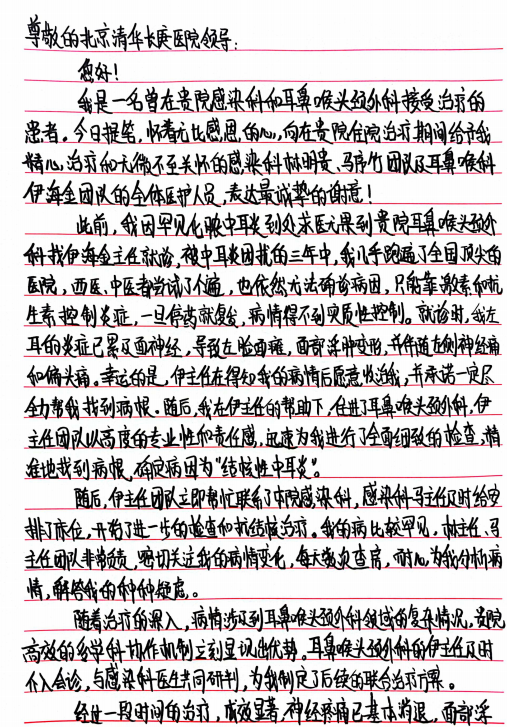 尊敬的北京清华长庚医院领导:
您好!
我是一名曾在贵院感染科和耳鼻喉头颈外科接受治疗的
患者。今日提笔,怀着无比感恩的心,向在贵院住院治疗期间给予我
精心治疗和无微不至关怀的感染科林明贵、马序竹团队及耳鼻喉科
伊海金团队的全体医护人员,表达最诚挚的谢意!
此前,我因罕见化脓中耳炎到处求医无果到贵院耳鼻喉头颈外
科找伊海金主任就诊,被中耳炎困扰的三年中,我几乎跑遍了全国顶尖的
医院,西医、中医都尝试了个遍,也依然无法确诊病因,只能靠激素和抗
生素控制炎症,一旦停药就复发,病情得不到实质性控制。就诊时,我左
耳的炎症已累及面神经,导致左脸面瘫,面部浮肿变形,并伴随左侧神经痛
和偏头痛。幸运的是,伊主任在得知我的病情后愿意收治我,并承诺一定尽
全力帮我找到病根。随后,我在伊主任的帮助下,住进了耳鼻喉头颈外科,伊
主任团队以高度的专业性和责任感,迅速为我进行了全面细致的检查,精
准地找到病根,确定病因为“结核性中耳炎”。
随后,伊主任团队立即帮忙联系了本院感染科,感染科马主任及时给安
排了床位,开始了进一步的检查和抗结核治疗。我的病比较罕见,林主任、马
主任团队非常负责,密切关注我的病情变化,每天数次查房,耐心为我分析病
情,解答我的种种疑虑。
随着治疗的深入,病情涉及到耳鼻喉头颈外科领域的复杂情况,贵院
高效的多学科协作机制立刻显现出优势。耳鼻喉头颈外科的伊主任及时
介入会诊,与感染科医生共同研判,为我制定了后续的联合治疗方案。
经过一段时间的治疗,成效显著,神经疼痛已基本消退,面部浮